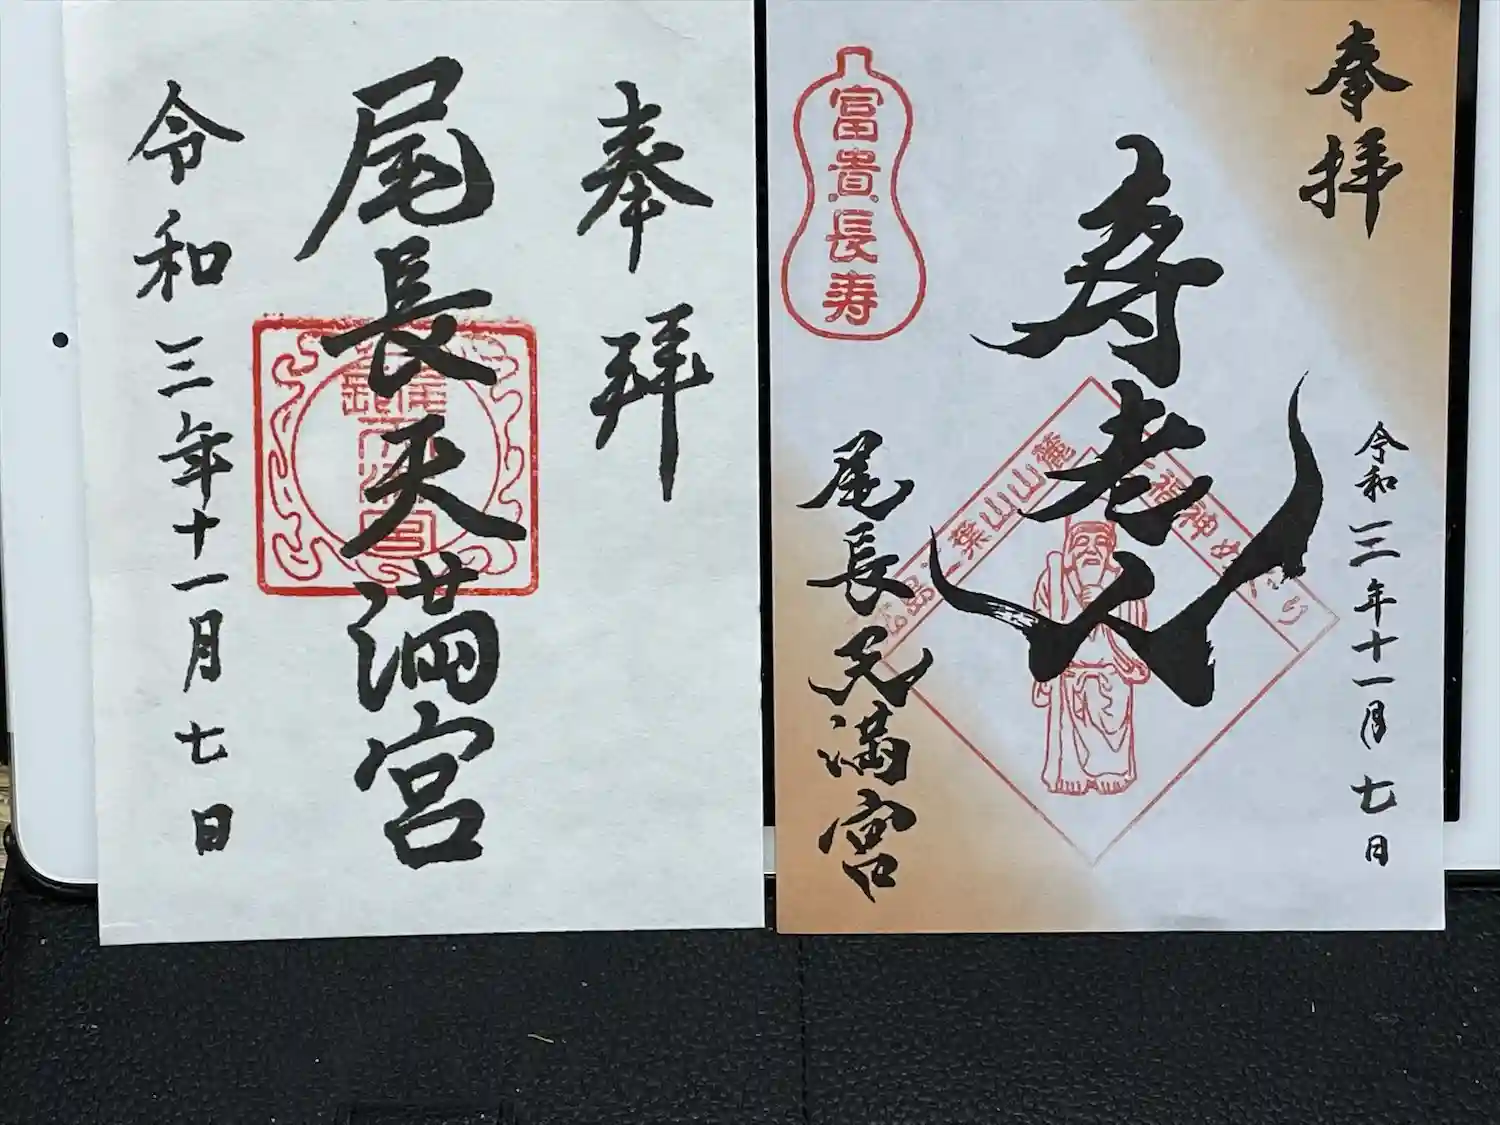 奉拝
尾長天満宮
令和三年十一月七日
奉拝
令和三年十一月七日
寿老人
富貴長寿
二葉山山麓
七福神めぐり
尾長天満宮